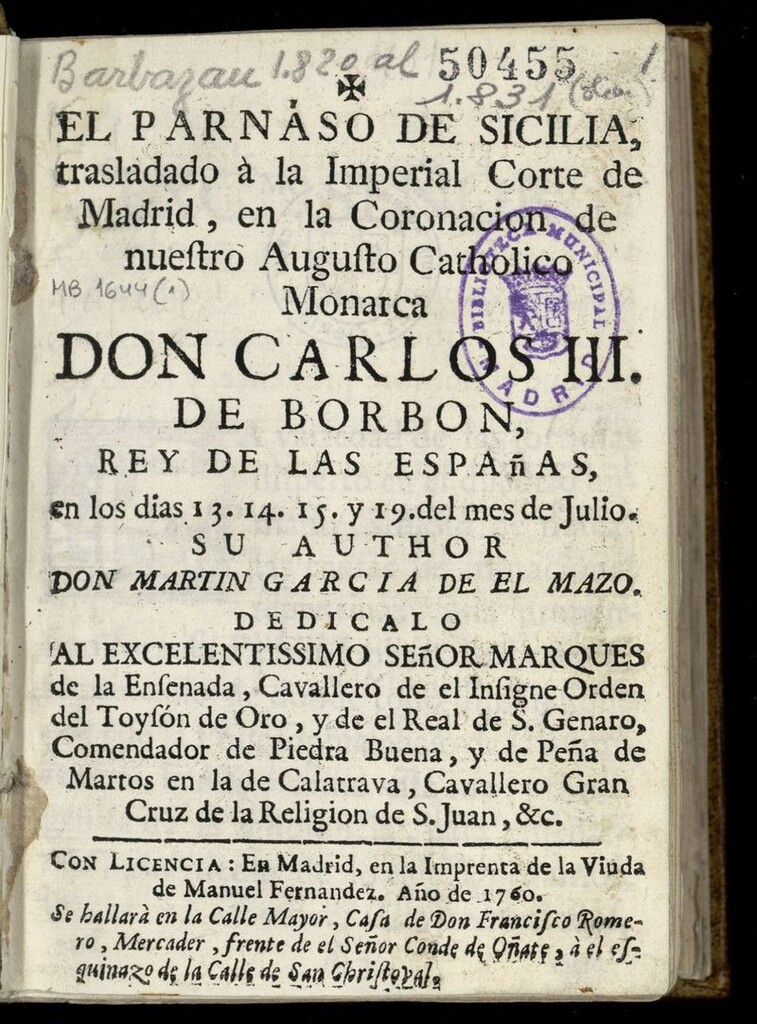 Barbazan 1.820 al 50455
1.831
✠
EL PARNASO DE SICILIA,
trasladado à la Imperial Corte de
Madrid, en la Coronacion de
nueſtro Auguſto Catholico
MB 1644 (1)
Monarca
DON CARLOS III.
DE BORBON,
REY DE LAS ESPAñAS,
en los dias 13. 14. 15. y 19. del mes de Julio.
SU AUTHOR
DON MARTIN GARCIA DE EL MAZO.
DEDICALO
AL EXCELENTISSIMO SEñOR MARQUES
de la Enſenada, Cavallero de el Inſigne Orden
del Toyſón de Oro, y de el Real de S. Genaro,
Comendador de Piedra Buena, y de Peña de
Martos en la de Calatrava, Cavallero Gran
Cruz de la Religion de S. Juan, &c.
CON LICENCIA: En Madrid, en la Imprenta de la Viuda
de Manuel Fernandez. Año de 1760.
Se hallarà en la Calle Mayor, Caſa de Don Franciſco Rome-
ro, Mercader, frente de el Señor Conde de Oñate, à el eſ-
quinazo de la Calle de San Chriſtoval.
BIBLIOTECA MUNICIPAL
MADRID